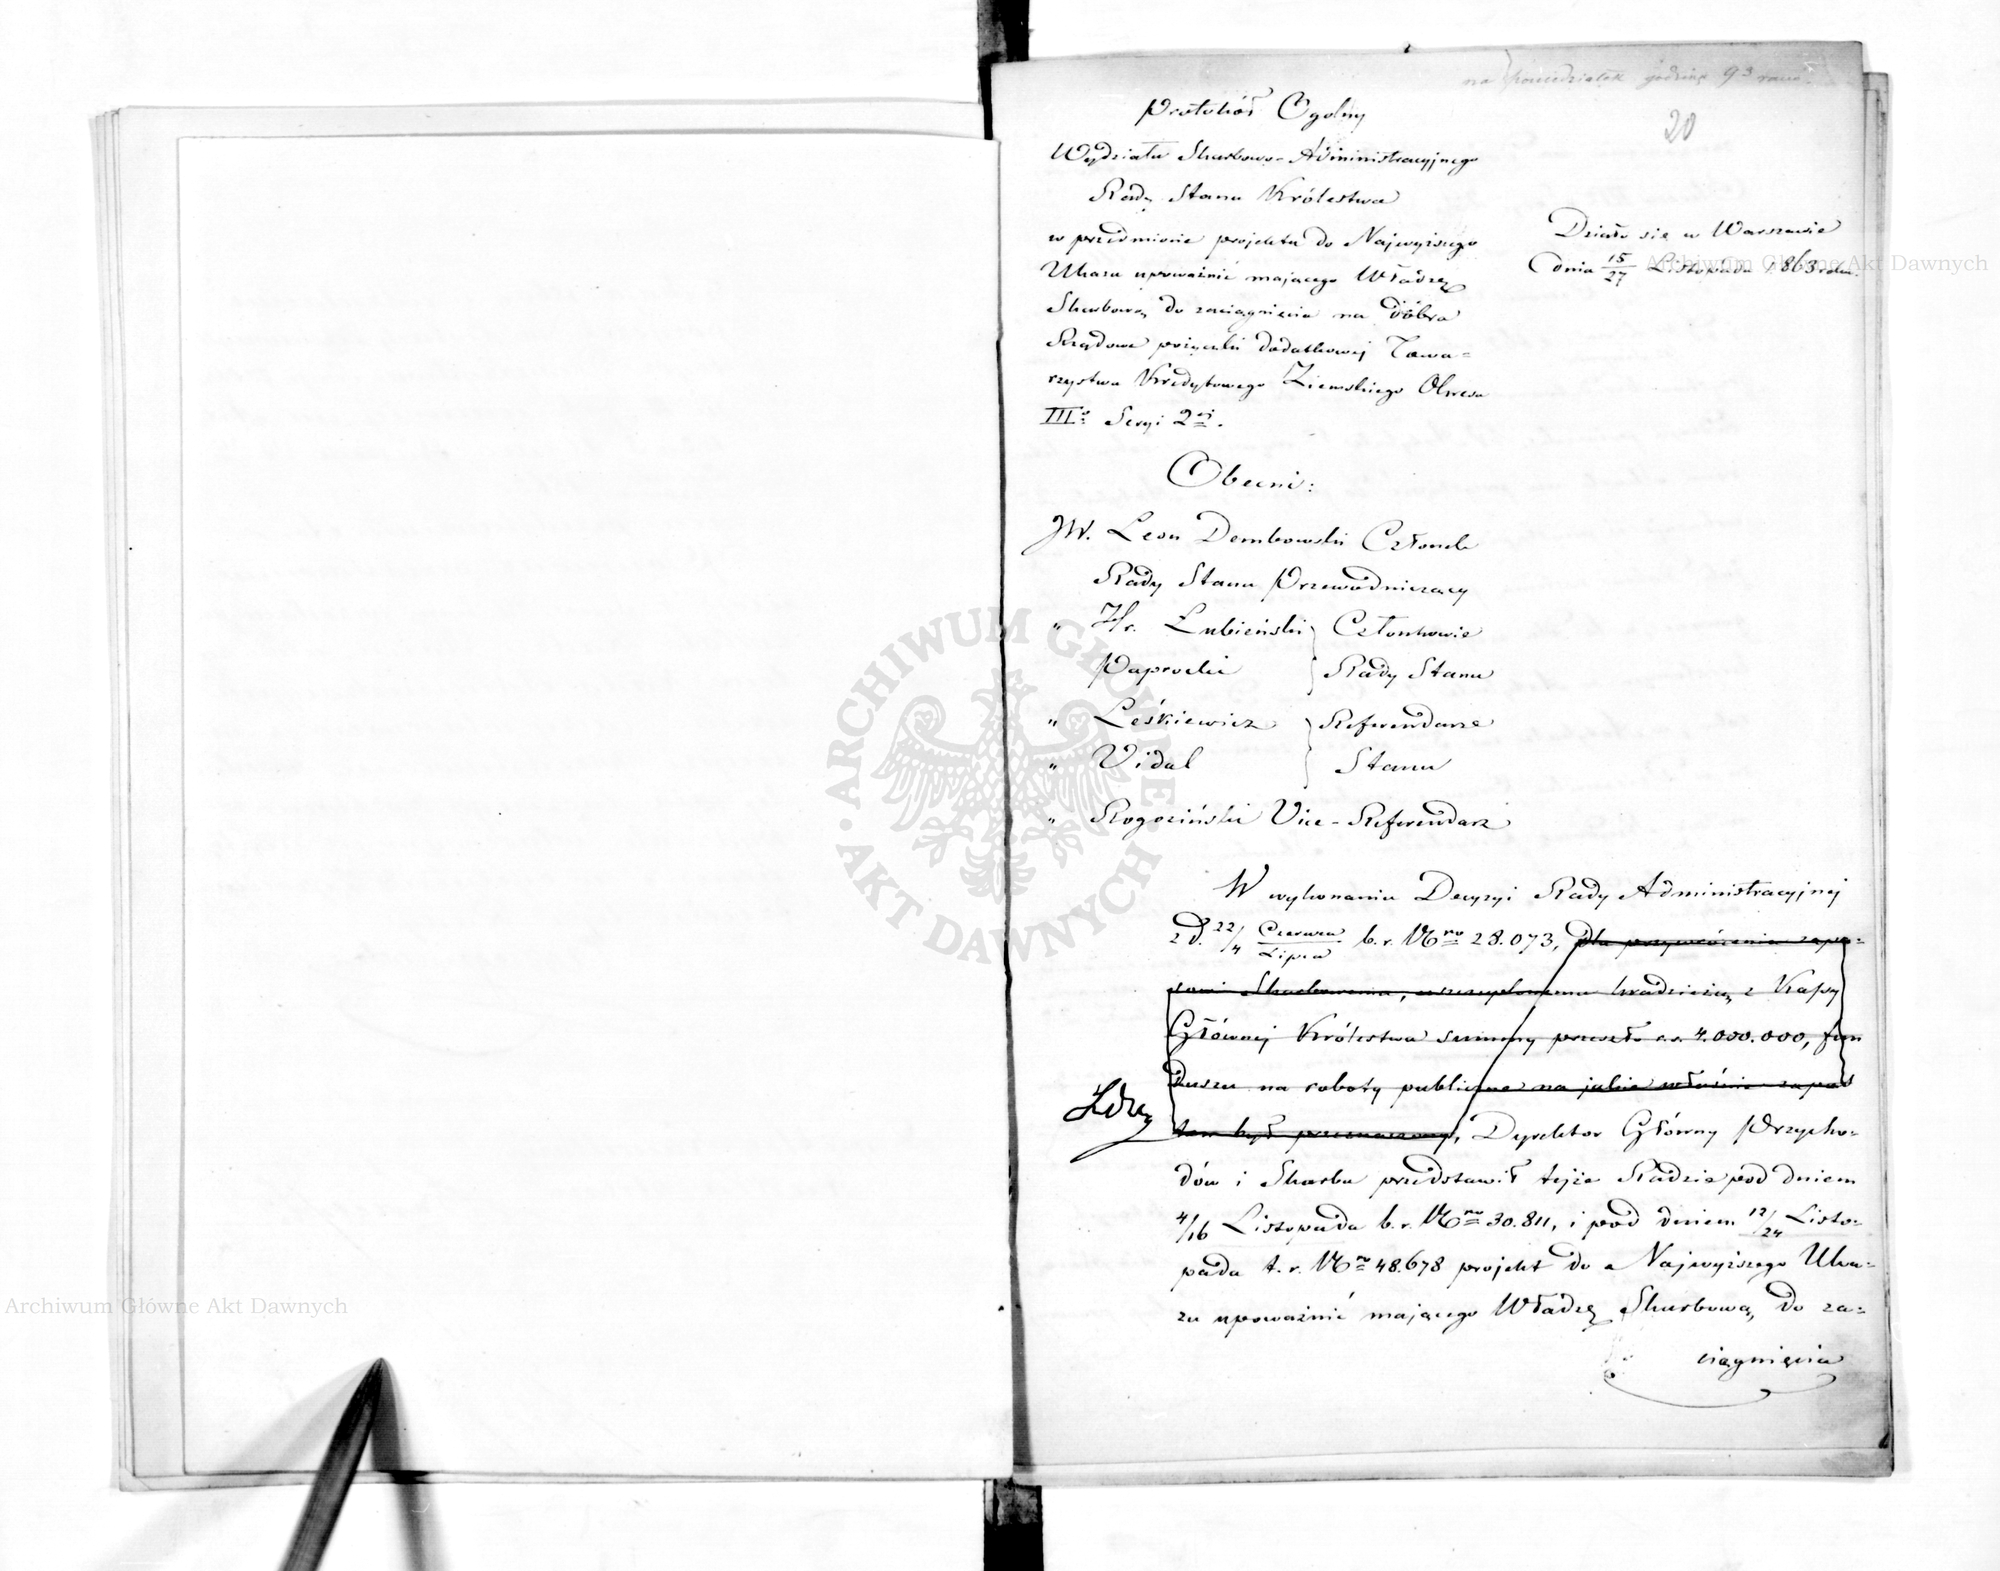 na poniedziałek godzinę 9ą rano
20
Protokół Ogolny
Wydziału Skarbowo-Administracyjnego
Rady Stanu Królestwa
w przedmiocie projektu do Najwyższego
Ukazu upoważnić mającego Władzę
Skarbową do zaciągnięcia na dobra
Rządowe pożyczki dodatkowej Towa=
rzystwa Kredytowego Ziemskiego Okresu
IIIo Seryi 2ej.
Działo się w Warszawie
dnia 15/27 Listopada 1863 roku.
Obecni:
JW. Leon Dembowski Członek
Rady Stanu Przewodniczący
" Hr. Łubieński Członkowie
Paprocki Rady Stanu
" Leśkiewicz Referendarze
" Vidal Stanu
" Rogoziński Vice-Referendarz
W wykonaniu Decyzyi Rady Administracyjnej
z d. 22/4 Czerwca/Lipca b.r. Nro 28.073, dla przywrócenia zapa=
sowi Skarbowemu, uszczuplonemu kradzieżą z Kassy
Głównej Królestwa summy przeszło r.s. 4.000.000, fun
duszu na roboty publiczne na jakie właśnie zapas
ten był przeznaczony, Dyrektor Główny Przycho=
dów i Skarbu przedstawił tejże Radzie pod dniem
4/16 Listopada b.r. Nro 30.811, i pod dniem 12/24 Listo=
pada t.r. Nro 48.678 projekt do Najwyższego Uka=
zu upoważnić mającego Władzę Skarbową do za=
ciągnięcia
Archiwum Główne Akt Dawnych
Archiwum Główne Akt Dawnych
ARCHIWUM GŁÓWNE • AKT DAWNYCH •